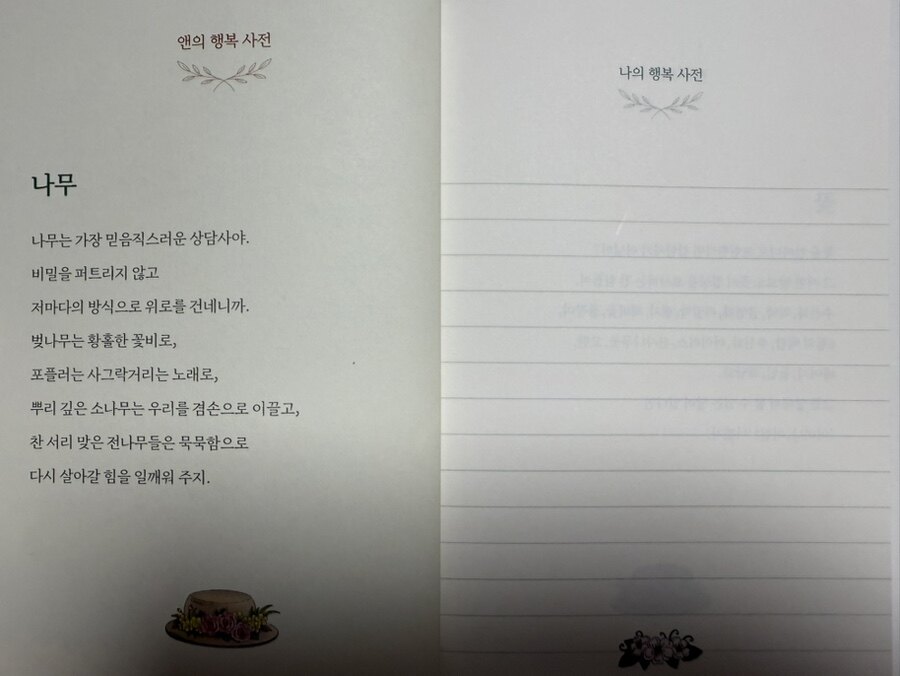 앤의 행복 사전
나무
나무는 가장 믿음직스러운 상담사야.
비밀을 퍼트리지 않고
저마다의 방식으로 위로를 건네니까.
벚나무는 황홀한 꽃비로,
포플러는 사그락거리는 노래로,
뿌리 깊은 소나무는 우리를 겸손으로 이끌고,
찬 서리 맞은 전나무들은 묵묵함으로
다시 살아갈 힘을 일깨워 주지.
나의 행복 사전